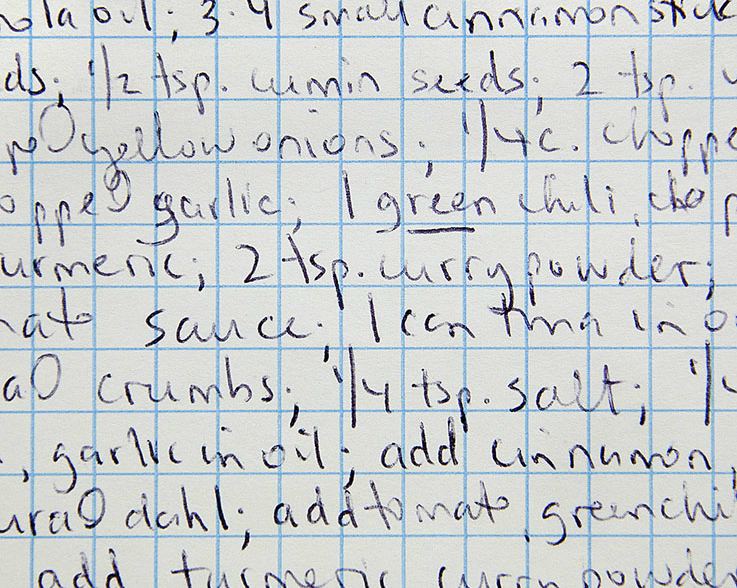 nola oil; 3-4 small cinnamon stick
ds; 1/2 tsp. cumin seeds; 2 tsp.
yellow onions; 1/4 c. choppe
opped garlic; 1 green chili, chop
urmeric; 2 tsp. curry powder;
mato sauce; 1 can tuna in o
ad crumbs; 1/4 tsp. salt; 1/4
, garlic in oil; add cinnamon,
urad dahl; add tomato, green chi
add turmeric curry powder